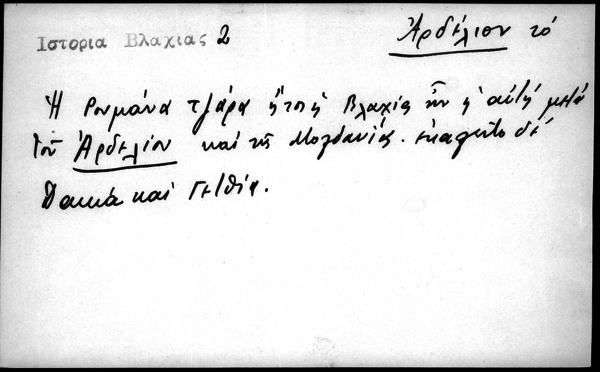 Ιστορια Βλαχιας 2
Ἀρδέλιον τό
Ἡ Ρουμάνα τζάρα ἤτοι ἡ Βλαχία ἦν ἡ αὐτή μετά
τοῦ Ἀρδελίου καί τῆς Μολδανίας. ἐκαλεῖτο δέ
Δακία καί Γετθία.